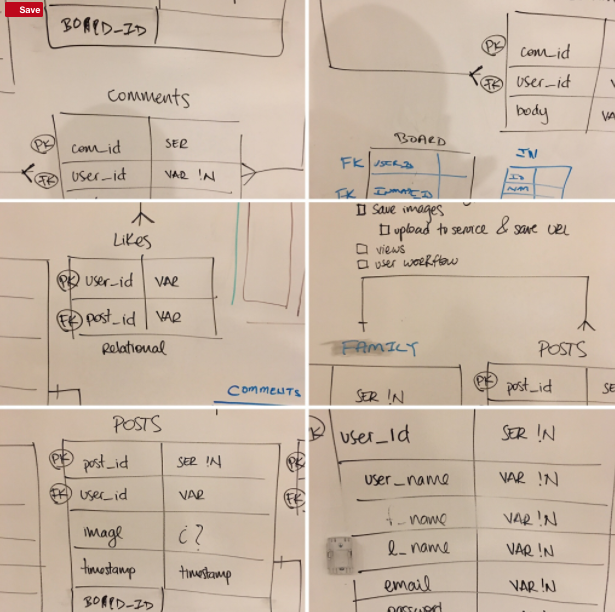 Save
BOARD_ID
Comments
PK com_id SER
FK user_id VAR !N
PK com_id
FK user_id
body VA
BOARD
FK USER_ID
FK
IN
ID
NUM
Likes
PK user_id VAR
FK post_id VAR
Relational
Comments
Save images
upload to service & save URL
views
user workflow
FAMILY POSTS
SER !N
PK post_id SE
POSTS
PK post_id SER !N PK
FK user_id VAR FK
image ¿?
timestamp timestamp
BOARD_ID
K user_id SER !N
user_name VAR !N
f_name VAR !N
l_name VAR !N
email VAR !N
password